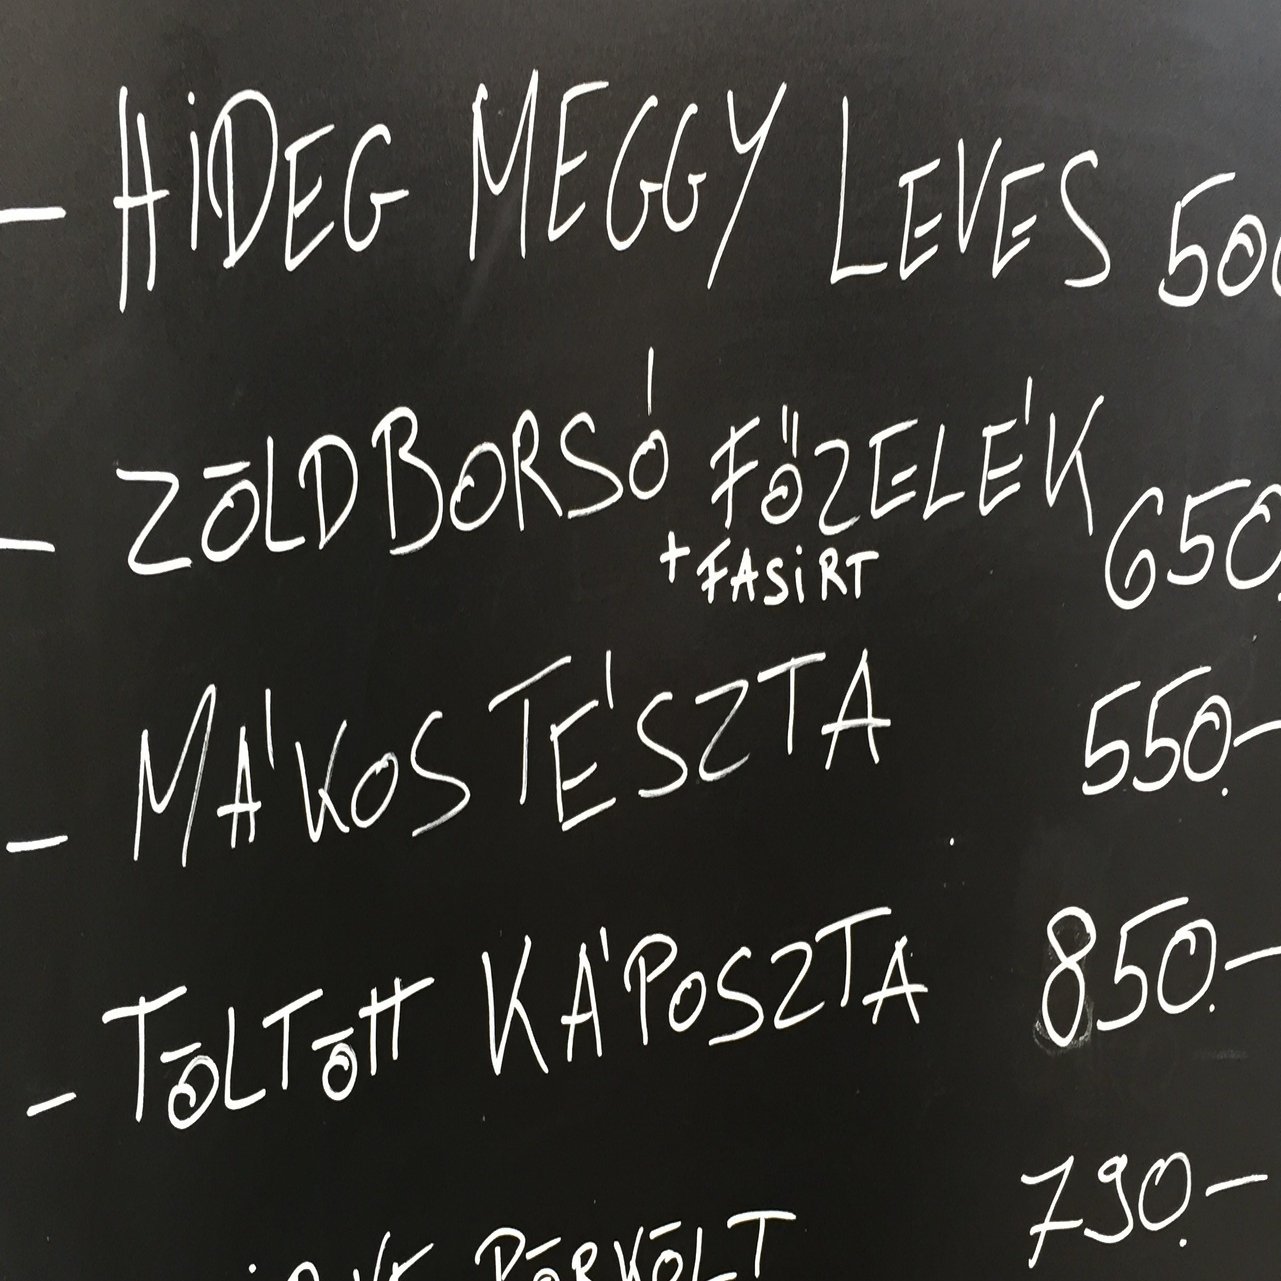 - HIDEG MEGGY LEVES 500
- ZÖLDBORSÓ FŐZELÉK 650.
+ FASIRT
- MÁKOS TÉSZTA 550.-
- TÖLTÖTT KÁPOSZTA 850.-
PÖRKÖLT 790.-